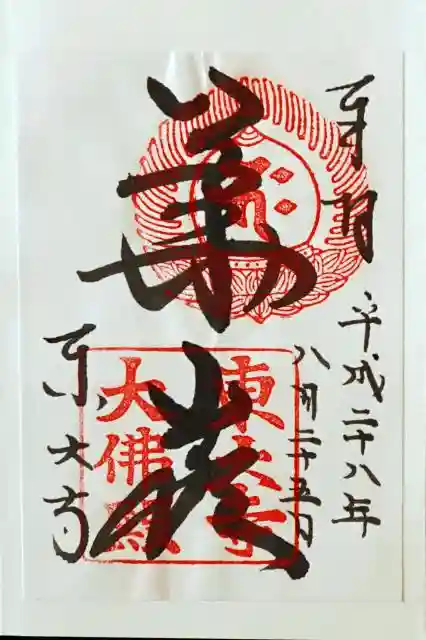 奉拝
平成二十八年
八月二十五日
華厳
東大寺
東大寺
大佛殿